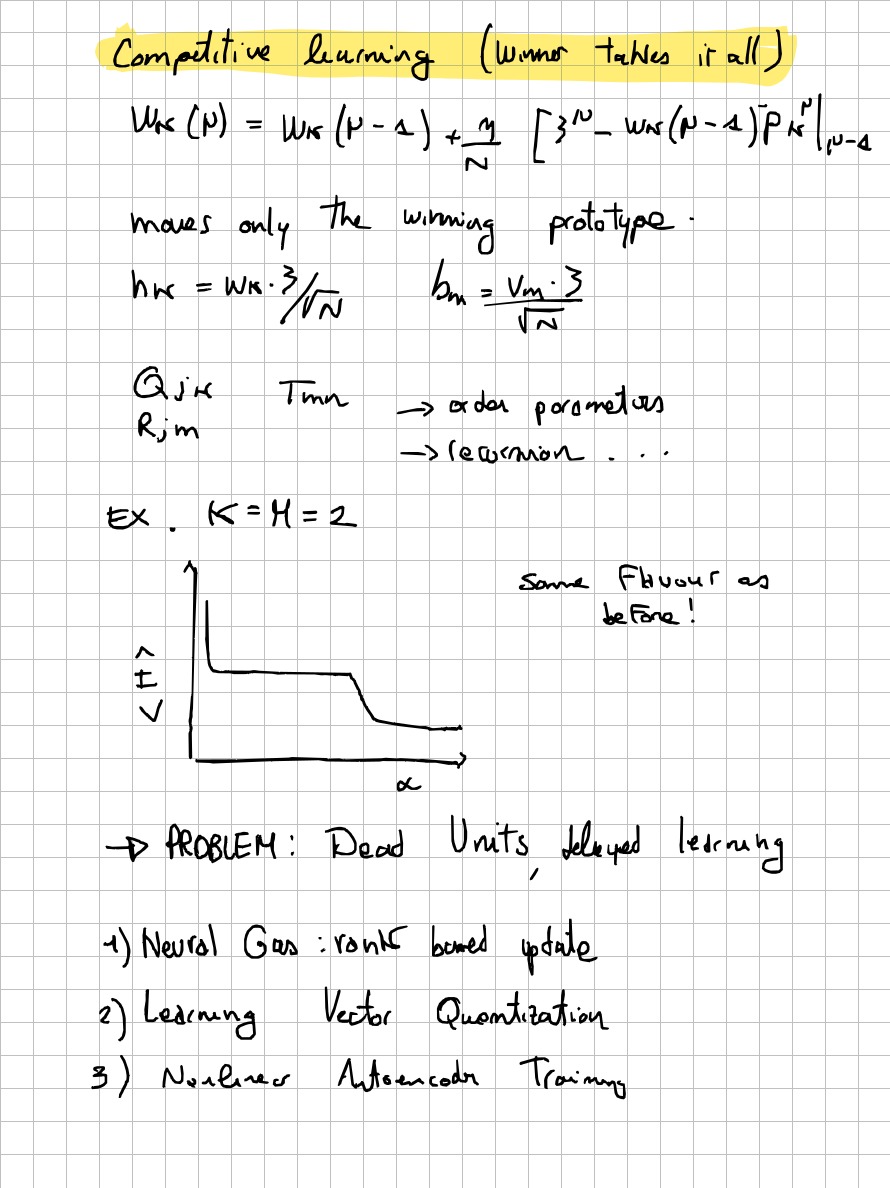 Competitive learning (Winner takles it all)
Wκ(μ) = Wκ(μ-1) + η/N [ξ^μ - Wκ(μ-1)] Pκ^μ |μ-1
moves only the winning prototype.
hκ = Wκ·ξ/√N    bm = Vm·ξ/√N
Qjκ Tmn
Rjm
→ order parameters
→ recursion ...
EX. K = M = 2
Same Flavour as
before!
< I >
α
→ PROBLEM: Dead Units, delayed learning
1) Neural Gas : rank based update
2) Learning Vector Quantization
3) Nonlinear Autoencoder Training